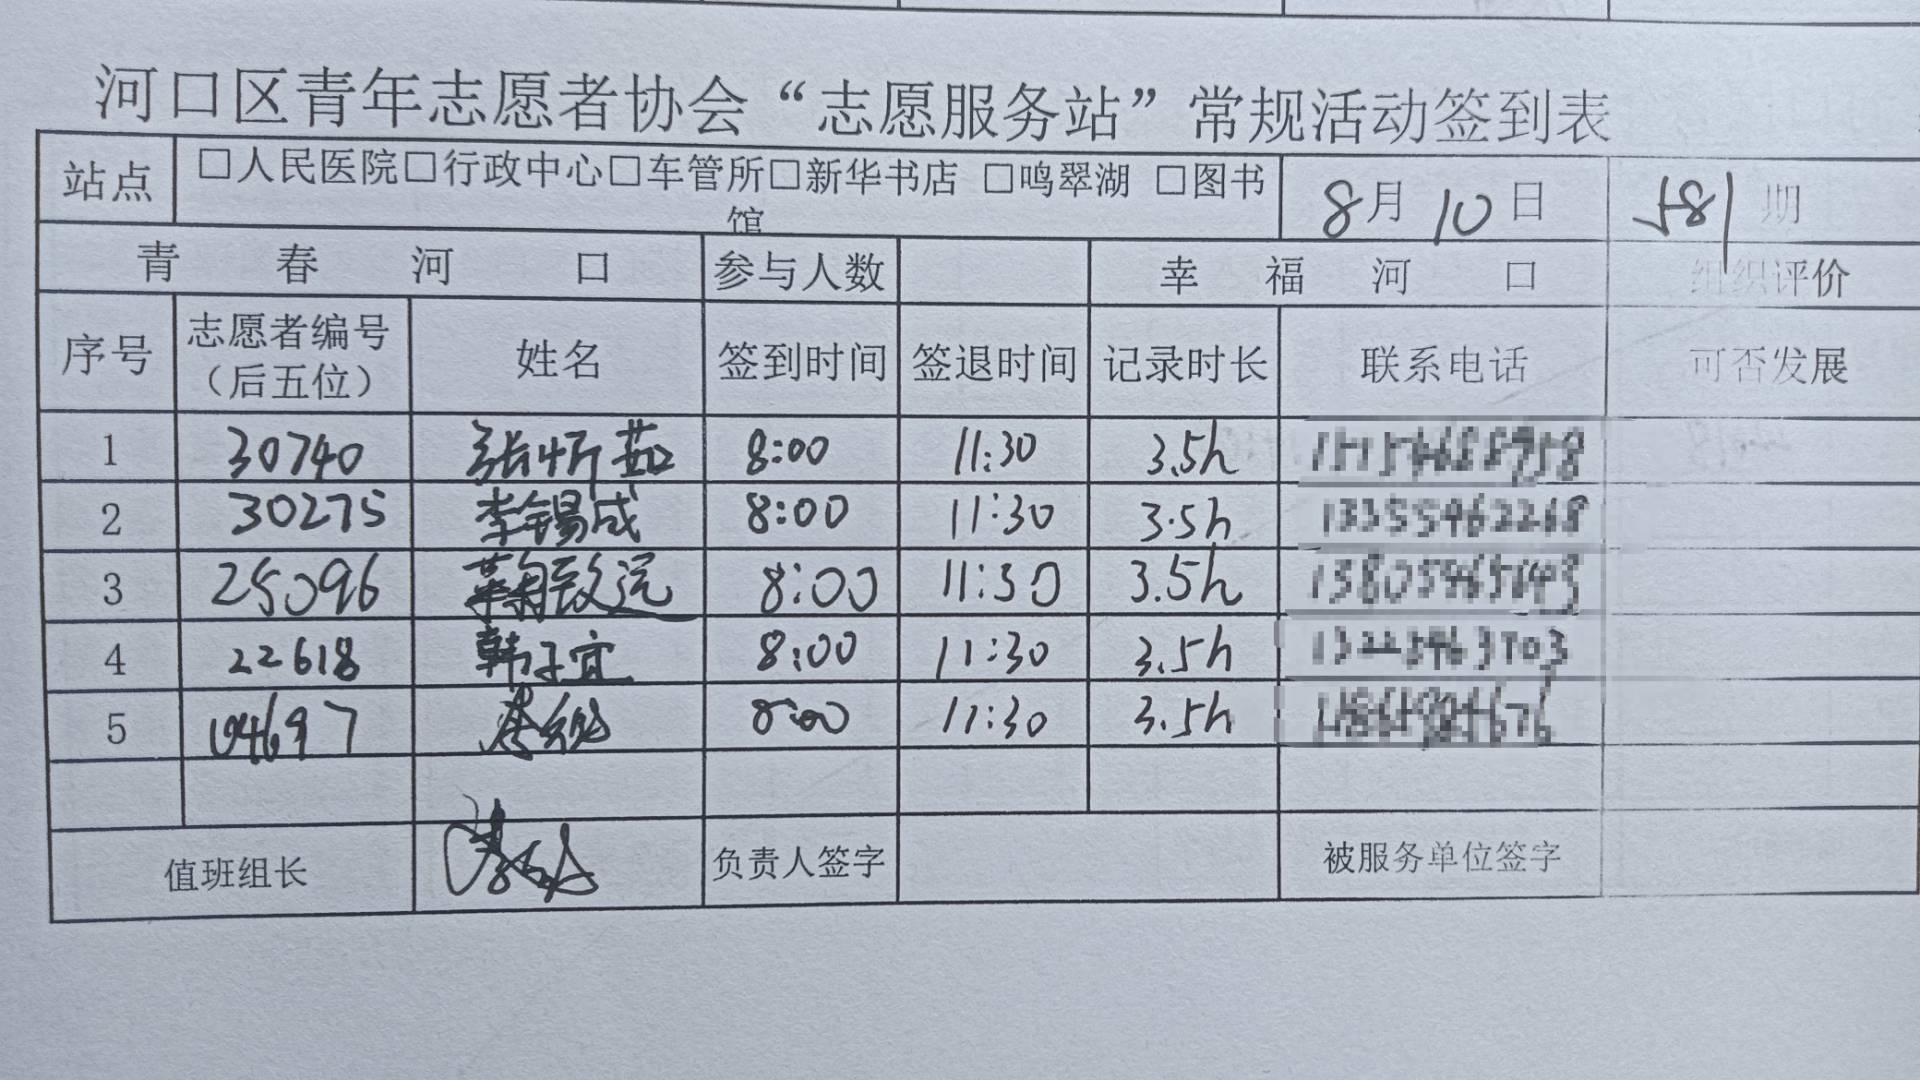 河口区青年志愿者协会“志愿服务站”常规活动签到表
站点 □人民医院□行政中心□车管所□新华书店 □鸣翠湖 □图书馆 8月10日 581期
青春河口 参与人数 幸福河口 组织评价
序号 志愿者编号（后五位） 姓名 签到时间 签退时间 记录时长 联系电话 可否发展
1 30740 张忻茹 8:00 11:30 3.5h
2 30275 李锡成 8:00 11:30 3.5h
3 25096 鞠致远 8:00 11:30 3.5h
4 22618 韩子宜 8:00 11:30 3.5h
5 04697 8:00 11:30 3.5h
值班组长 负责人签字 被服务单位签字